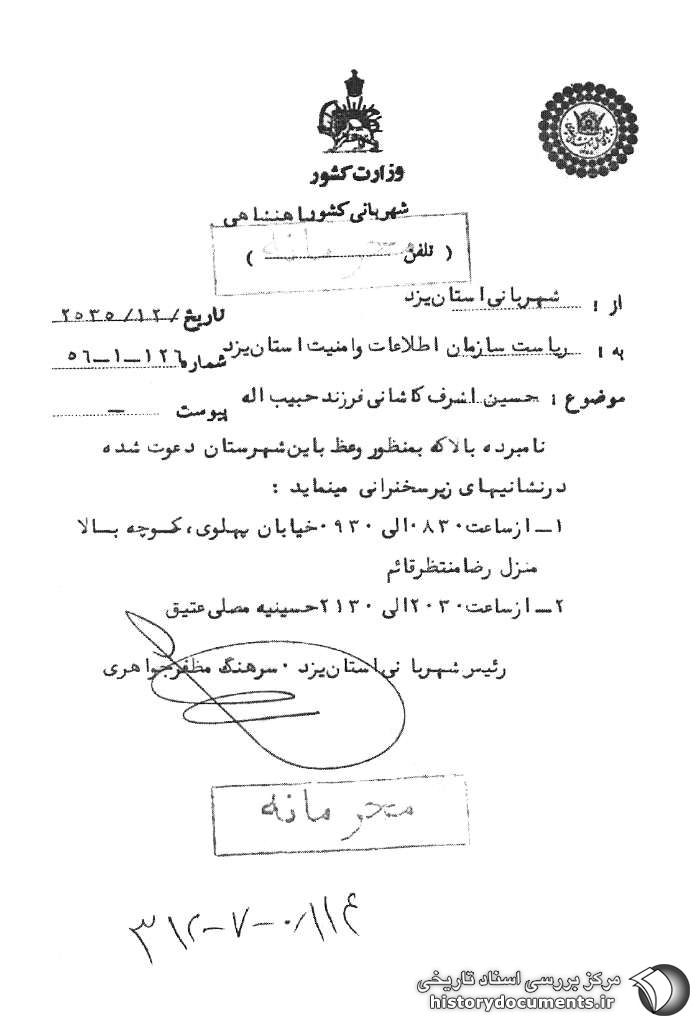 وزارت کشور
شهربانی کشور شاهنشاهی
محرمانه
( تلفن )
از : شهربانی استان یزد
تاریخ / ۱۲ / ۲۵۳۵
به : ریاست سازمان اطلاعات وامنیت استان یزد
شماره ۱۲۶ـ۱ـ۵۶
موضوع : حسین اشرف کاشانی فرزند حبیب اله
پیوست ـ
نامبرده بالاکه بمنظور وعظ باین شهرستان دعوت شده
درنشانیهای زیرسخنرانی مینماید :
۱ـ ازساعت ۰۸۳۰ الی ۰۹۳۰ خیابان پهلوی، کوچه بالا
منزل رضامنتظرقائم
۲ـ ازساعت ۲۰۳۰ الی ۲۱۳۰ حسینیه مصلی عتیق
رئیس شهربانی استان یزد ۰ سرهنگ مظفرجواهری
محرمانه
مرکز بررسی اسناد تاریخی
historydocuments.ir